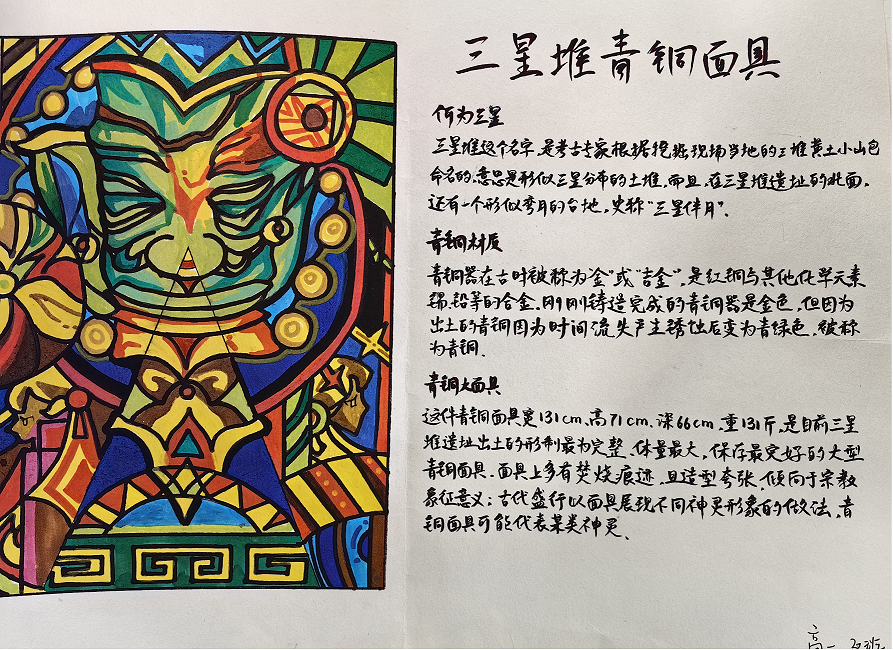 三星堆青铜面具
何为三星
三星堆这个名字,是考古专家根据挖掘现场当地的三堆黄土小山包
命名的,意思是形似三星分布的土堆,而且,在三星堆遗址的北面,
还有一个形似弯月的台地,史称"三星伴月".
青铜材质
青铜器在古时被称为"金"或"吉金",是红铜与其他化学元素
锡、铅等的合金,刚刚铸造完成的青铜器是金色,但因为
出土的青铜因为时间流失产生锈蚀后变为青绿色,被称
为青铜.
青铜大面具
这件青铜面具宽131cm、高71cm、深66cm、重131斤,是目前三星
堆遗址出土的形制最为完整、体量最大,保存最完好的大型
青铜面具.面具上多有焚烧痕迹,且造型夸张,倾向于宗教
象征意义;古代盛行以面具展现不同神灵形象的做法,青
铜面具可能代表某类神灵.
高一 班